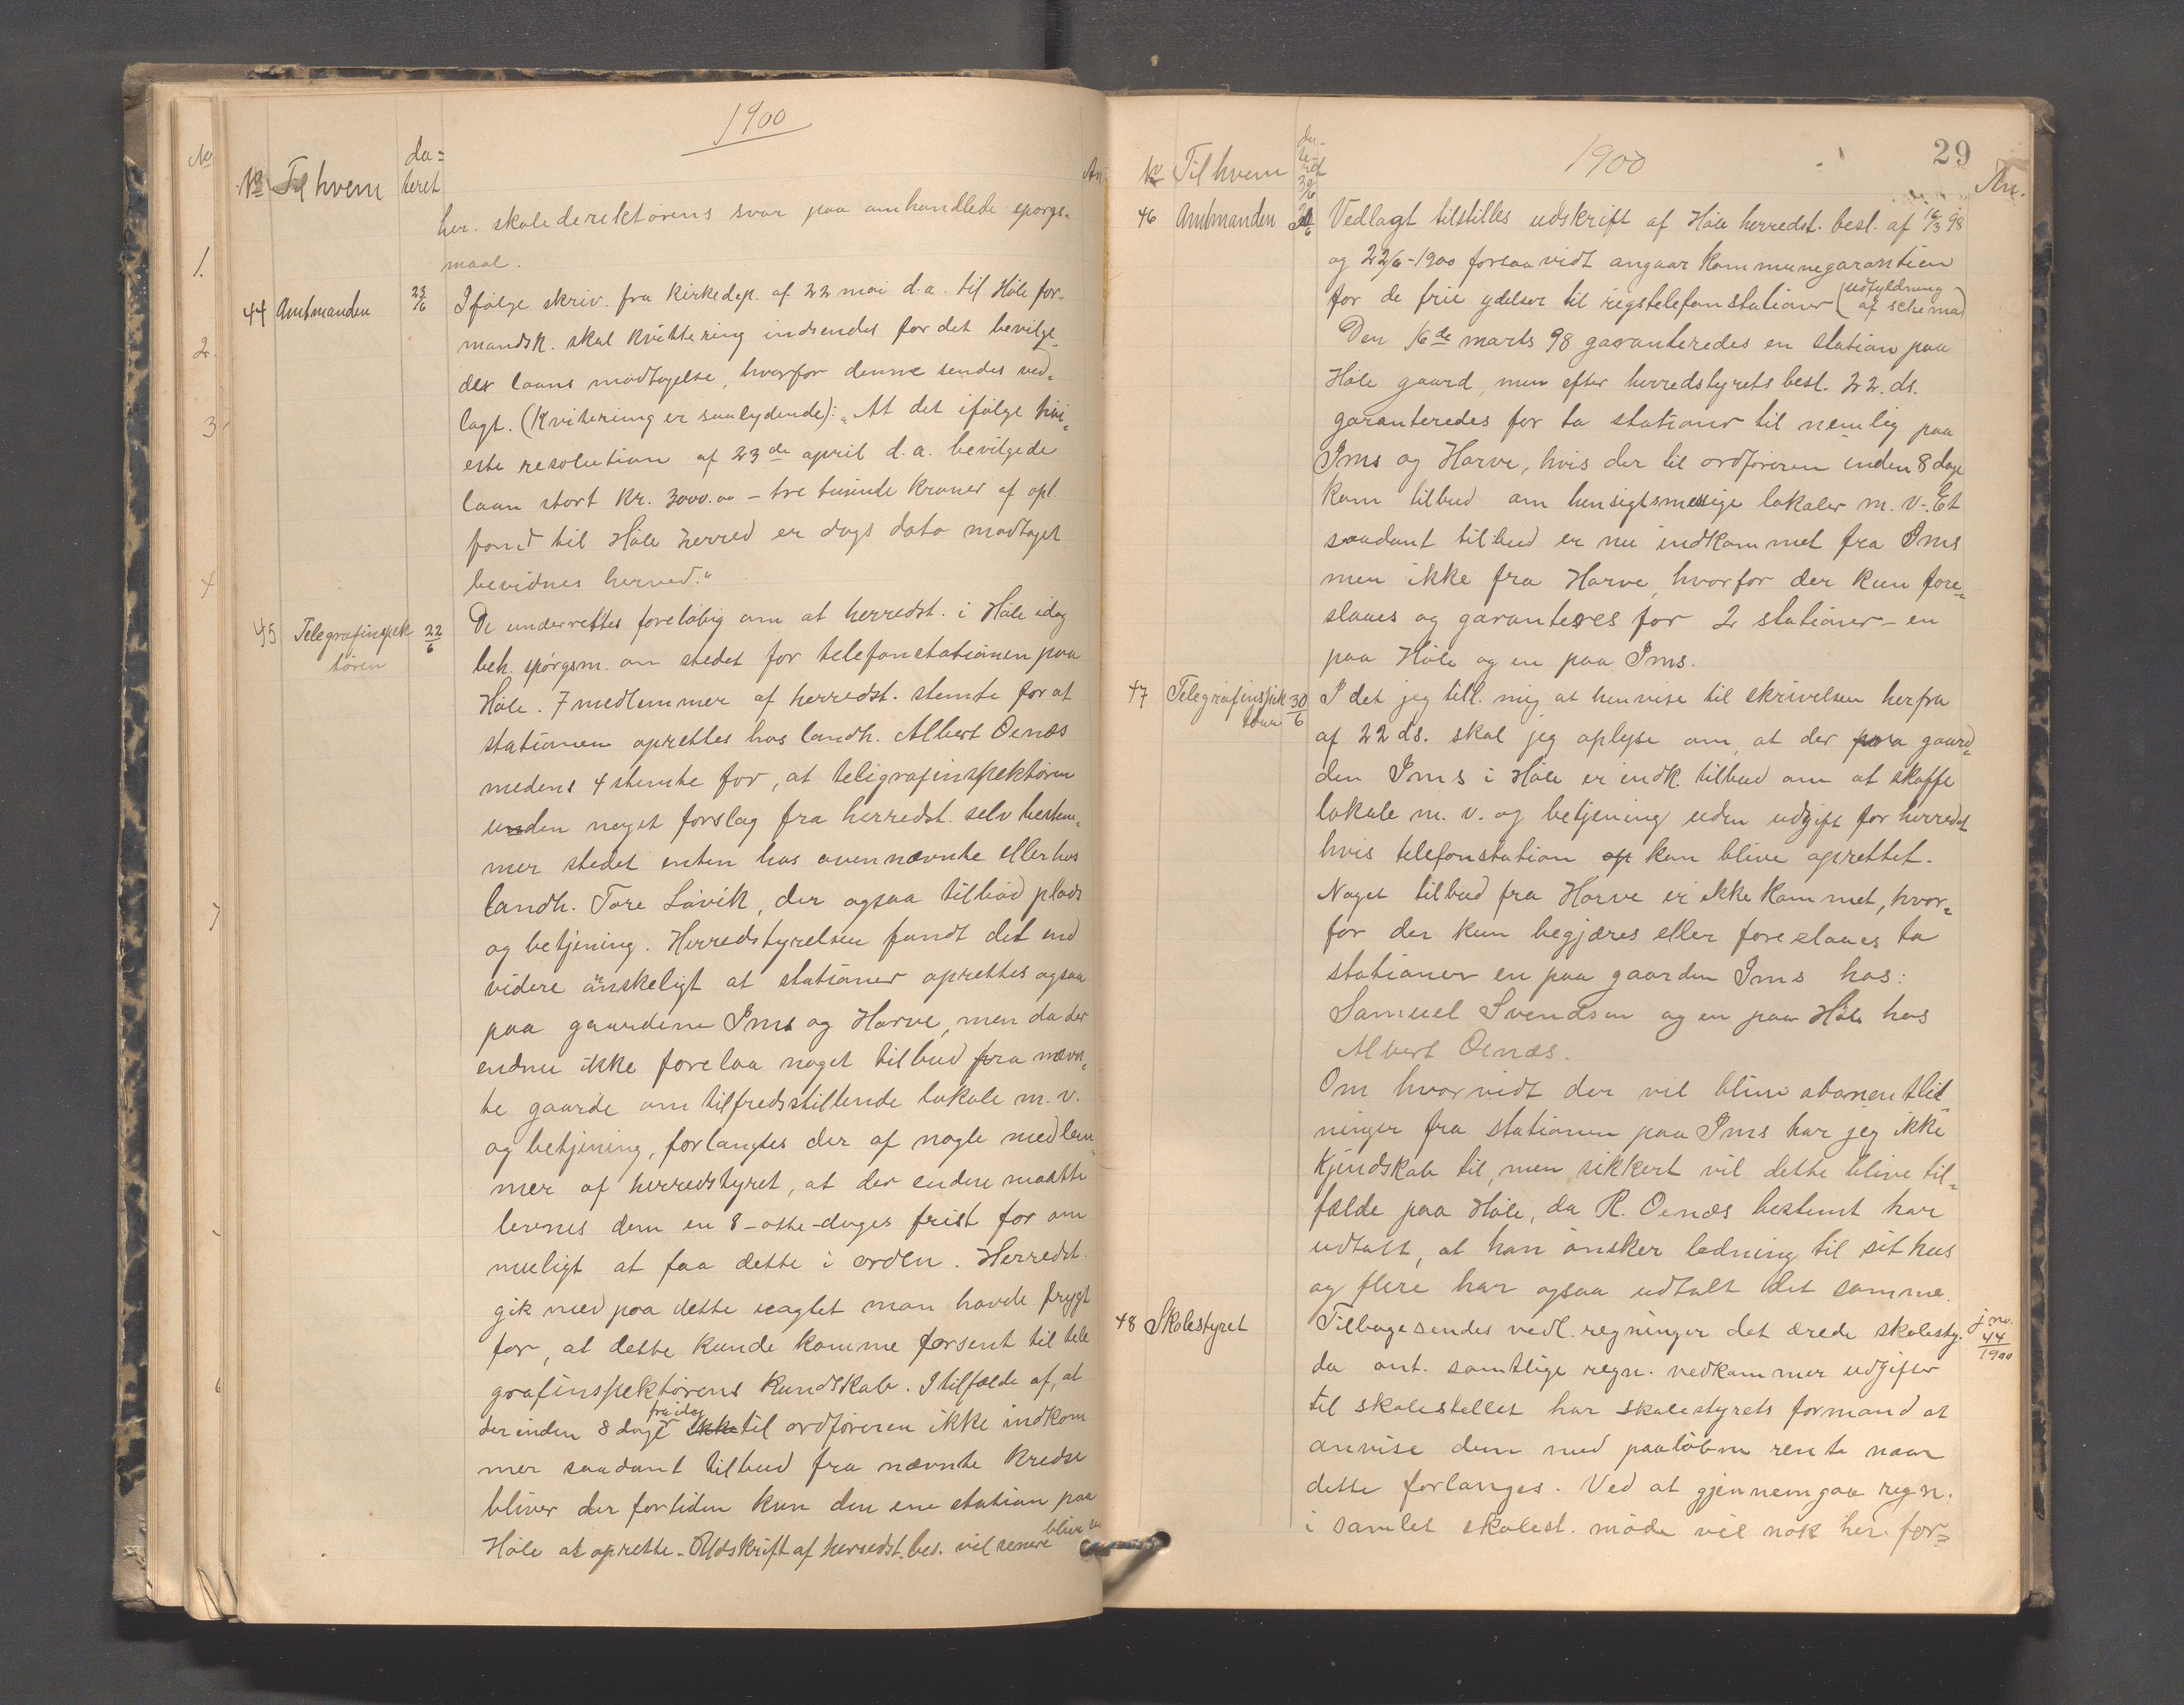 1900
No Til hvem da=
teret
her. skoledirektørens svar paa omhandlede spørgs=
maal.
44 Amtmanden 23/6 Ifølge skriv. fra Kirkedep. af 22 mai d.a. til Høle for=
mandsk. skal kvittering indsendes for det bevilge
des laans modtagelse, hvorfor denne sendes ved=
lagt. (Kvitering er saalydende): „At det ifølge høi=
este resolution af 23de april d.a. bevilgede
laan stort kr. 3000.00 – tre tusinde kroner af opl.
fond til Høle herred er dags dato modtaget
bevidnes herved."
45 Telegrafinspek 22/6 De underrettes foreløbig om at herredst. i Høle idag
tøren
beh. spørgsm. om stedet for telefonstationen paa
Høle. 7 medlemmer af herredst. stemte for at
stationen oprettes hos landh. Albert Oenæs
medens 4 stemte for, at teligrafinspektøren
unden noget forslag fra herredst. selv bestem=
mer stedet enten hos ovennævnte eller hos
landh. Tore Løvik, der ogsaa tilbød plads
og betjening. Herredstyrelsen fandt det end
videre ønskeligt at stationer oprettes ogsaa
paa gaardene Ims og Horve, men da der
endnu ikke forelaa noget tilbud fra nævn=
te gaarde om tilfredsstillende lokale m.v.
og betjening, forlangtes der af nogle medlem
mer af herredstyret, at der endnu maatte
levnes dem en 8-otte-dages frist for om
muligt at faa dette i orden. Herredst.
gik med paa dette uagtet man havde frygt
for, at dette kunde komme forsent til tele
grafinspektørens kundskab. I tilfælde af, at
der inden 8 dage fra idag ikke til ordføreren ikke indkom
mer saadant tilbud fra nævnte kredse
bliver der fortiden kun den ene station paa
Høle at oprette. Udskrift af herredst. bes. vil senere blive
29
1900
No Til hvem da-
te-
ret
An.
46 Amtmanden 30/6 Vedlagt tilstilles udskrift af Høle herredst. besl. af 16/3 98
og 22/6-1900 forsaavidt angaar kommunegarantien
for de frie ydelser til rigstelefonstationer (udfyldning
af schema)
Den 16de marts 98 garanteredes en station paa
Høle gaard, men efter herredstyrets besl. 22. ds.
garanteredes for to stationer til nemlig paa
Ims og Horve, hvis der til ordføreren inden 8 dage
kom tilbud om hensigtsmessige lokaler m.v. Et
saadant tilbud er nu indkommet fra Ims
men ikke fra Horve, hvorfor der kun fore=
slaaes og garanteres for 2 stationer – en
paa Høle og en paa Ims.
47 Telegrafinspek 30/6 I det jeg till. mig at henvise til skrivelsen herfra
af 22 ds. skal jeg oplyse om, at der paa gaard=
den Ims i Høle er indk. tilbud om at skaffe
lokale m.v. og betjening uden udgift for herredet
hvis telefonstation op kan blive oprettet.
Noget tilbud fra Horve er ikke kommet, hvor=
for der kun begjæres eller foreslaaes to
stationer en paa gaarden Ims hos:
Samuel Svendsen og en paa Høle hos
Albert Oenæs.
Om hvorvidt der vil blive abonentled=
ninger fra stationen paa Ims har jeg ikke
kjendskab til, men sikkert vil dette blive til=
fælde paa Høle, da R. Oenæs bestemt har
udtalt, at han ønsker ledning til sit hus
og flere har ogsaa udtalt det samme.
48 Skolestyret Tilbagesendes vedl. regninger det ærede skolesty. j.no. 44/1900
da ant. samtlige regn. vedkommer udgifter
til skolestellet har skolestyrets formand at
anvise dem med paaløbne rente naar
dette forlanges. Ved at gjennemgaa regn.
i samlet skolest. møde vil nok her. for=